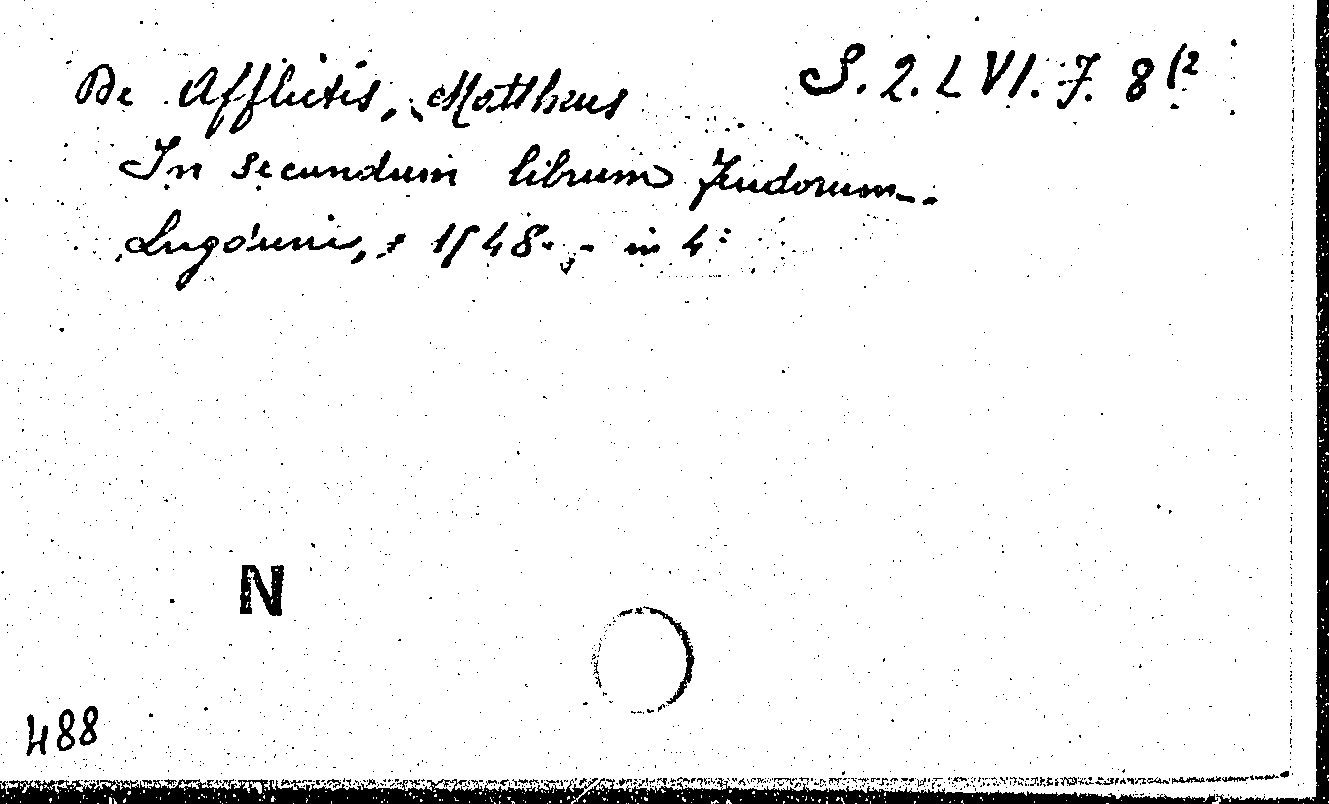 De Afflictis, Matthaeus
S. 2. LVI. F. 8 (2
In secundum librum feudorum.
Lugduni, 1548. - in 4:
N
488